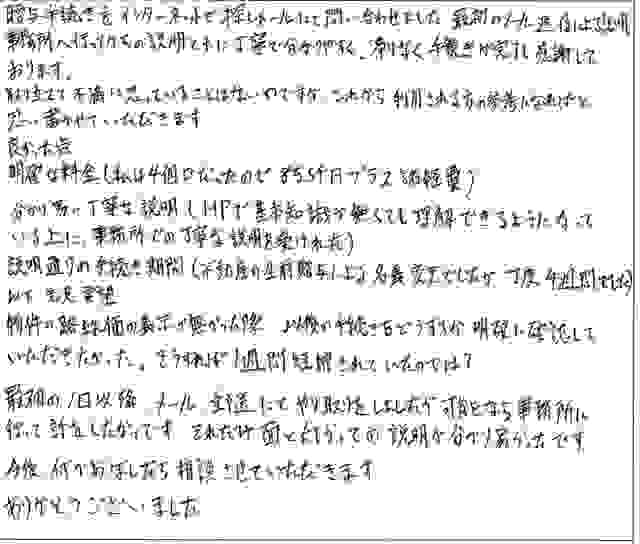 贈与手続きをインターネットで探しメールにて問い合わせました 最初のメール返信による説明
事務所へ行ってからの説明ともに丁寧で分かりやすく、滞りなく手続きが完了し感謝して
おります。
取り立てて不満に思っていることはないのですが これから利用される方の参考になればと
思い書かせていただきます
良かった点
明確な料金(私は4個口だったので 8万5千円プラス諸経費)
分かり易い丁寧な説明(HPで基本知識が無くても理解できるようになって
いる上に、事務所での丁寧な説明を受けれた)
説明通りの手続き期間(不動産の生前贈与による名義変更でしたが 丁度4週間でした)
以下 意見 要望
物件の路線価の表示が無かった際 以後の手続きをどうするか 明確に確認して
いただきたかった。そうすれば1週間短縮されていたのでは?
最初の1日以後 メール 郵送にてやり取りをしましたが 可能となら事務所に
伺って 計をしたかったです それだけ面と向かっての説明が分かり易かったです
今後 何かありましたら相談させていただきます
ありがとうございました